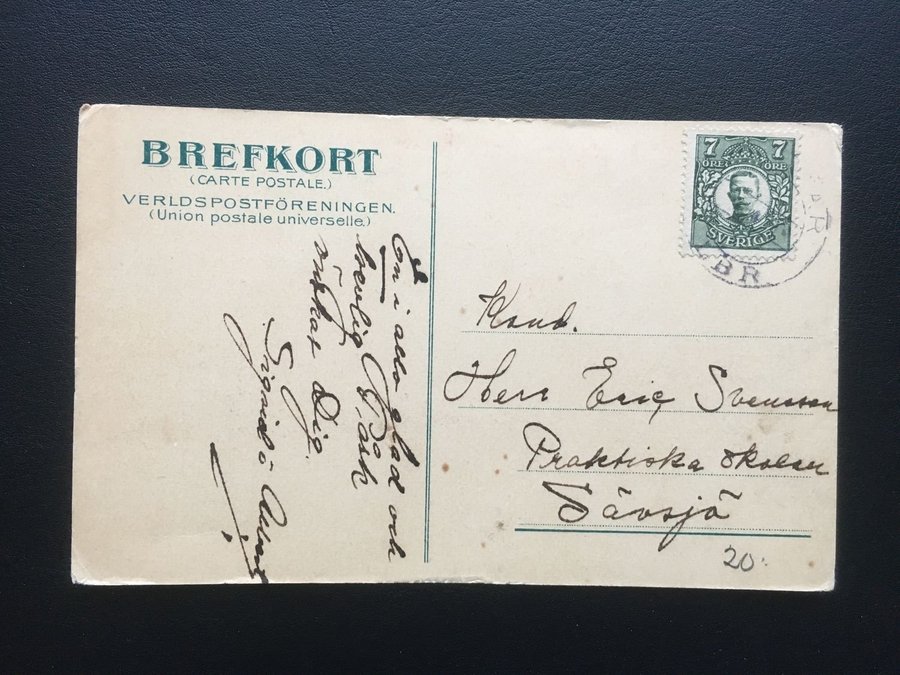 BREFKORT
(CARTE POSTALE.)
VERLDSPOSTFÖRENINGEN.
(Union postale universelle.)
En i allo glad och
trevlig Påsk
önskar Dig
Sigrid o
7 7
ÖRE ÖRE
SVERIGE
BR
Kand.
Herr Eric Svensson
Praktiska skolan
Sävsjö
20.